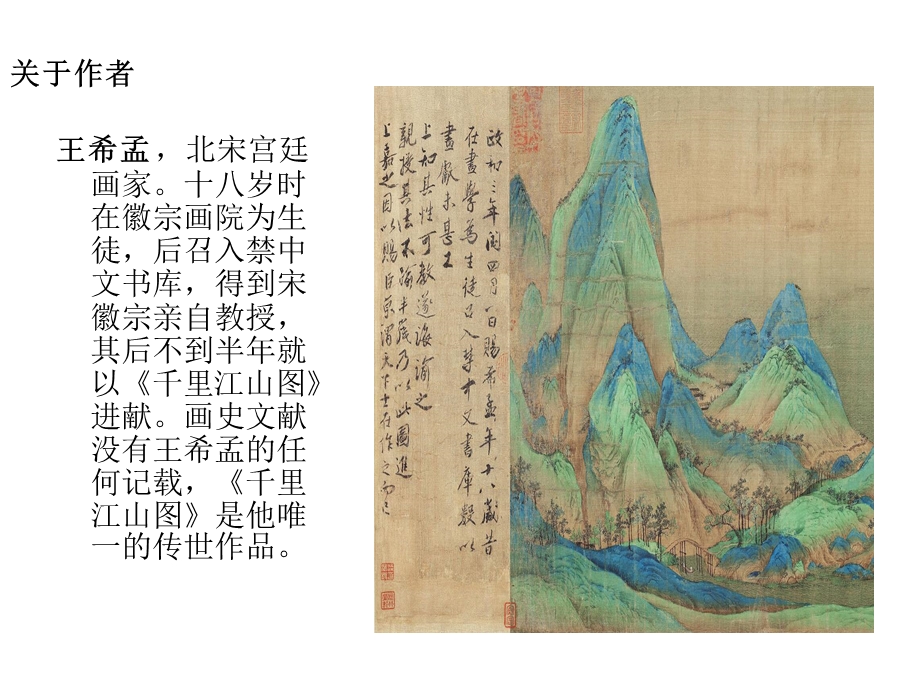 关于作者
王希孟，北宋宫廷
画家。十八岁时
在徽宗画院为生
徒，后召入禁中
文书库，得到宋
徽宗亲自教授，
其后不到半年就
以《千里江山图》
进献。画史文献
没有王希孟的任
何记载，《千里
江山图》是他唯
一的传世作品。
政和三年閏四月八日賜希孟年十八歲昔
在畫學為生徒召入禁中文書庫數以
畫獻未甚工
上知其性可教遂誨諭之
親授其法不踰半歲乃以此圖進
上嘉之因以賜臣京謂天下士在作之而已